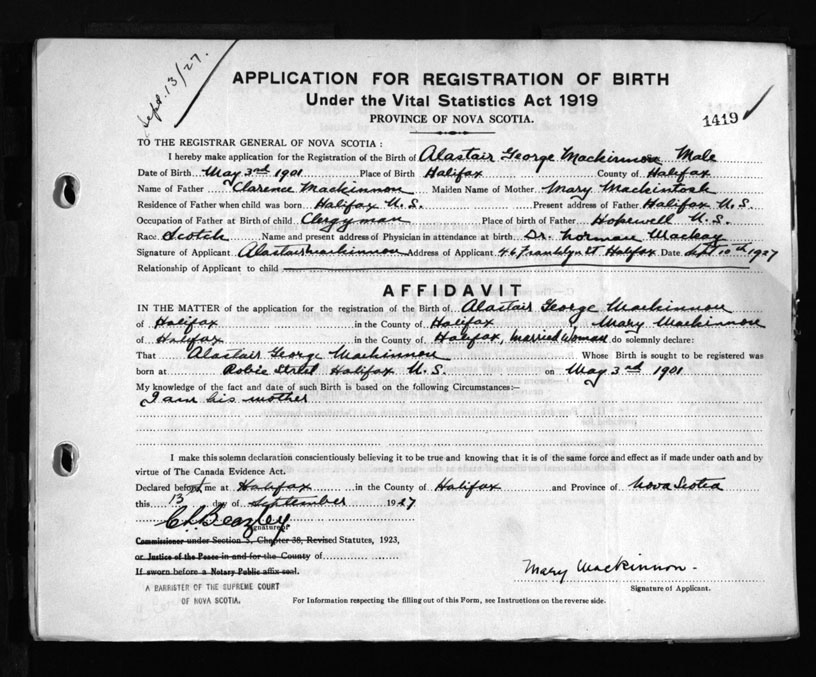 Sept. 13/27.
APPLICATION FOR REGISTRATION OF BIRTH
Under the Vital Statistics Act 1919
PROVINCE OF NOVA SCOTIA.
1419
TO THE REGISTRAR GENERAL OF NOVA SCOTIA:
I hereby make application for the Registration of the Birth of Alastair George Mackinnon Male
Date of Birth May 3rd 1901 Place of Birth Halifax County of Halifax
Name of Father Clarence Mackinnon Maiden Name of Mother Mary Mackintosh
Residence of Father when child was born Halifax N.S. Present address of Father Halifax N.S.
Occupation of Father at Birth of child Clergyman Place of birth of Father Hopewell N.S.
Race Scotch Name and present address of Physician in attendance at birth Dr. Norman Mackay
Signature of Applicant Alastair Mackinnon Address of Applicant 46 Franklyn St Halifax Date Sept 10th 1927
Relationship of Applicant to child
AFFIDAVIT
IN THE MATTER of the application for the registration of the Birth of Alastair George Mackinnon
of Halifax in the County of Halifax I, Mary Mackinnon
of Halifax in the County of Halifax, Married Woman do solemnly declare:
That Alastair George Mackinnon Whose Birth is sought to be registered was
born at Robie Street Halifax N.S. on May 3rd 1901
My knowledge of the fact and date of such Birth is based on the following Circumstances:—
I am his mother
I make this solemn declaration conscientiously believing it to be true and knowing that it is of the same force and effect as if made under oath and by
virtue of The Canada Evidence Act.
Declared before me at Halifax in the County of Halifax and Province of Nova Scotia
this 13 day of September 1927
C L Beazley
Signature of
Commissioner under Section 3, Chapter 38, Revised Statutes, 1923,
or Justice of the Peace in and for the County of
If sworn before a Notary Public affix seal.
Mary Mackinnon
Signature of Applicant.
A BARRISTER OF THE SUPREME COURT
OF NOVA SCOTIA.
For Information respecting the filling out of this Form, see Instructions on the reverse side.